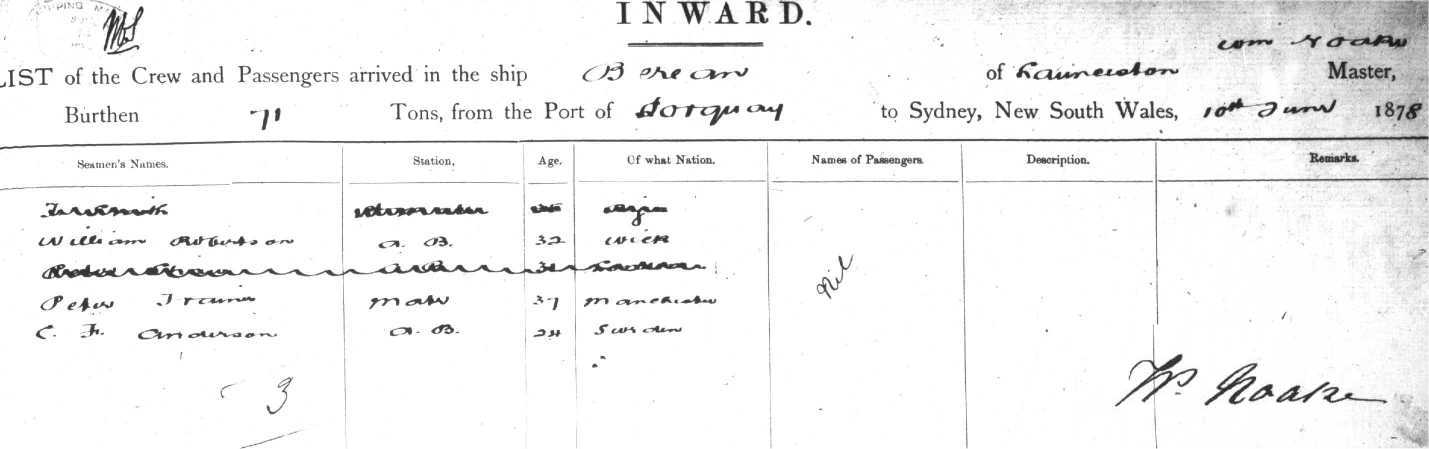 INWARD.
Wm Noake
LIST of the Crew and Passengers arrived in the ship Berean of Launceston Master,
Burthen 71 Tons, from the Port of Torquay to Sydney, New South Wales, 10th June 1878
Seamen's Names. Station, Age. Of what Nation. Names of Passengers. Description. Remarks.
William Robertson A. B. 32 Wick
Peter Mate 37 Manchester
C. Fr. Anderson A. B. 24 Sweden
Nil
3
Wm Noake